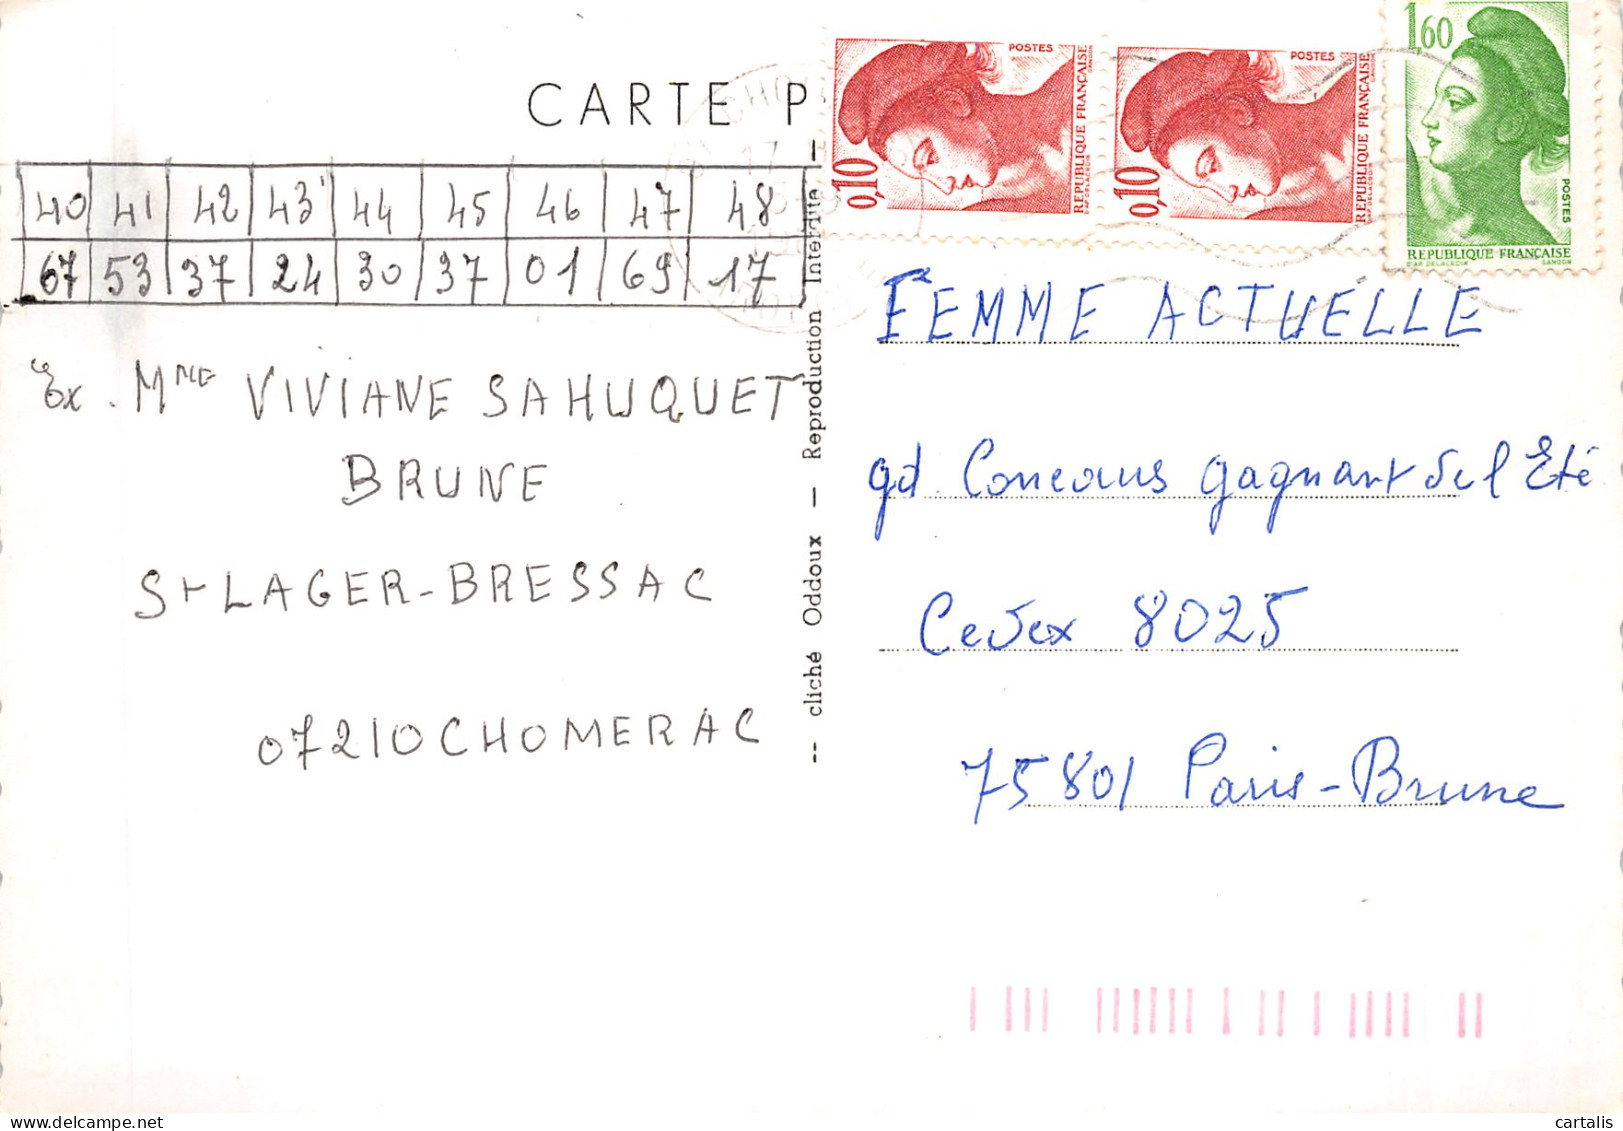 CARTE P
40 41 42 43 44 45 46 47 48
67 53 37 24 30 37 01 69 17
Ex. Mme VIVIANE SAHUQUET
BRUNE
St LAGER-BRESSAC
07210 CHOMERAC
-- cliché Oddoux — Reproduction Interdite —
0,10
POSTES
REPUBLIQUE FRANÇAISE
0,10
POSTES
REPUBLIQUE FRANÇAISE
1,60
POSTES
REPUBLIQUE FRANÇAISE
D'AP. DELACROIX GANDON
FEMME ACTUELLE
gd Concours gagnant de l'Eté
Cedex 8025
75801 Paris-Brune
cartalis